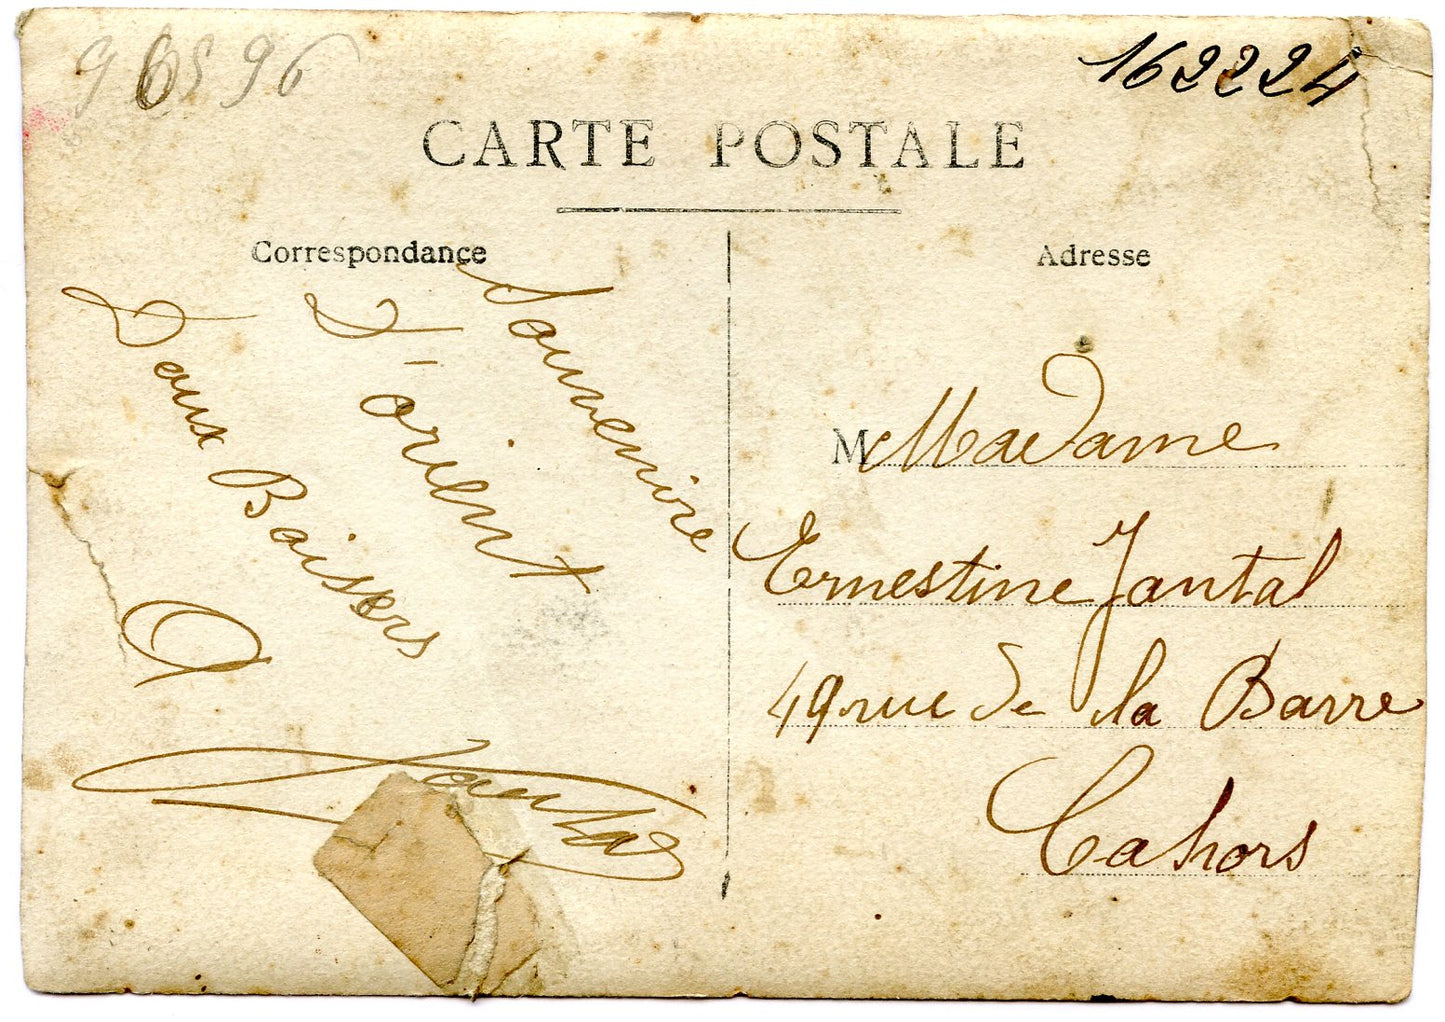 96596
162224
CARTE POSTALE
Correspondance
Adresse
Souvenire
d'orient
Doux Baisers
M Madame
Ernestine Jantal
49 rue de la Barre
Cahors